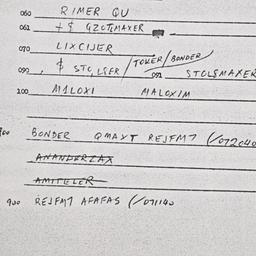 060 RIMER QU
062 + $ GZOTEMAXER
070 LIXCIJER
090 $ STOLSER / TOWER / BONDER
092 STOLSMAXER
200 MALOXI MALOXIM
BONDER QMAXT REJFM7 (/072040
ANANDERZAX
AMITELER
900 REJFM7 AFAFAS (/071140